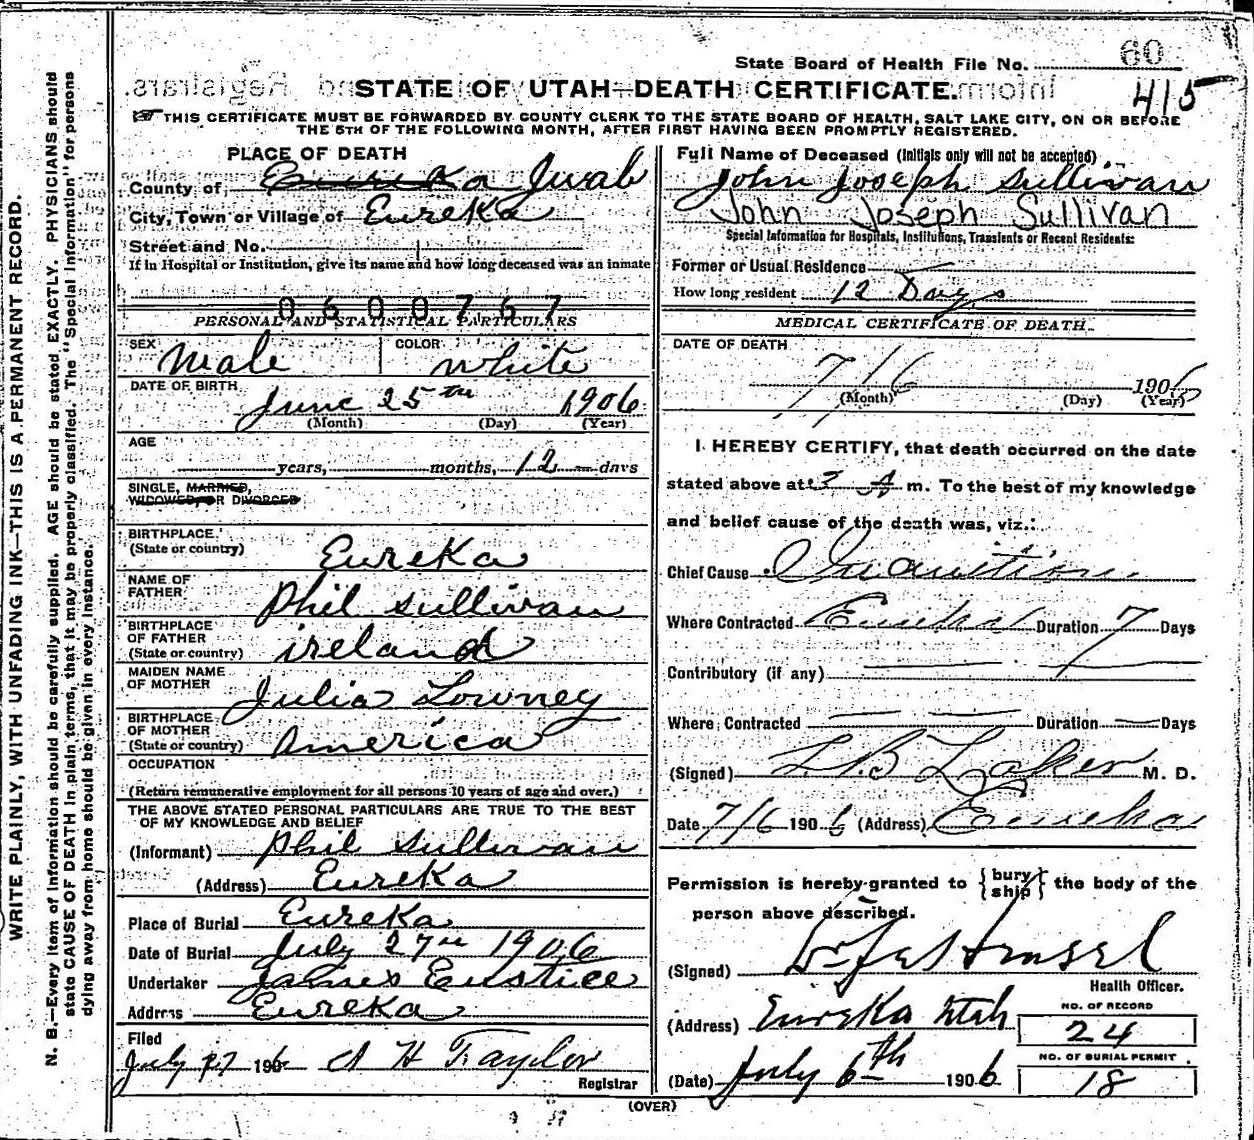 State Board of Health File No. 60
STATE OF UTAH—DEATH CERTIFICATE.
415
THIS CERTIFICATE MUST BE FORWARDED BY COUNTY CLERK TO THE STATE BOARD OF HEALTH, SALT LAKE CITY, ON OR BEFORE
THE 5TH OF THE FOLLOWING MONTH, AFTER FIRST HAVING BEEN PROMPTLY REGISTERED.
WRITE PLAINLY, WITH UNFADING INK—THIS IS A PERMANENT RECORD.
N. B.—Every item of information should be carefully supplied. AGE should be stated EXACTLY. PHYSICIANS should
state CAUSE OF DEATH in plain terms, that it may be properly classified. The "Special Information" for persons
dying away from home should be given in every instance.
PLACE OF DEATH
County of Eureka Juab
City, Town or Village of Eureka
Street and No.
If in Hospital or Institution, give its name and how long deceased was an inmate
0600767
PERSONAL AND STATISTICAL PARTICULARS
SEX Male COLOR White
DATE OF BIRTH
June 25th 1906
(Month) (Day) (Year)
AGE
years, months, 12 days
SINGLE, MARRIED,
WIDOWED, OR DIVORCED
BIRTHPLACE
(State or country) Eureka
NAME OF
FATHER Phil Sullivan
BIRTHPLACE
OF FATHER
(State or country) ireland
MAIDEN NAME
OF MOTHER Julia Lowney
BIRTHPLACE
OF MOTHER
(State or country) America
OCCUPATION
(Return remunerative employment for all persons 10 years of age and over.)
THE ABOVE STATED PERSONAL PARTICULARS ARE TRUE TO THE BEST
OF MY KNOWLEDGE AND BELIEF
(Informant) Phil Sullivan
(Address) Eureka
Place of Burial Eureka
Date of Burial July 27th 1906
Undertaker James Eustice
Address Eureka
Filed
July 27 1906 A H Taylor
Registrar
Full Name of Deceased (Initials only will not be accepted)
John Joseph Sullivan
John Joseph Sullivan
Special Information for Hospitals, Institutions, Transients or Recent Residents:
Former or Usual Residence
How long resident 12 Days
MEDICAL CERTIFICATE OF DEATH.
DATE OF DEATH
7/6 1906
(Month) (Day) (Year)
I HEREBY CERTIFY, that death occurred on the date
stated above at 3 A m. To the best of my knowledge
and belief cause of the death was, viz.:
Chief Cause Inanition
Where Contracted Eureka Duration 7 Days
Contributory (if any)
Where Contracted Duration Days
(Signed) M. D.
Date 7/6 1906 (Address) Eureka
Permission is hereby granted to {bury ship} the body of the
person above described.
(Signed)
Health Officer.
(Address) Eureka Utah
NO. OF RECORD
24
NO. OF BURIAL PERMIT
18
(Date) July 6th 1906
(OVER)